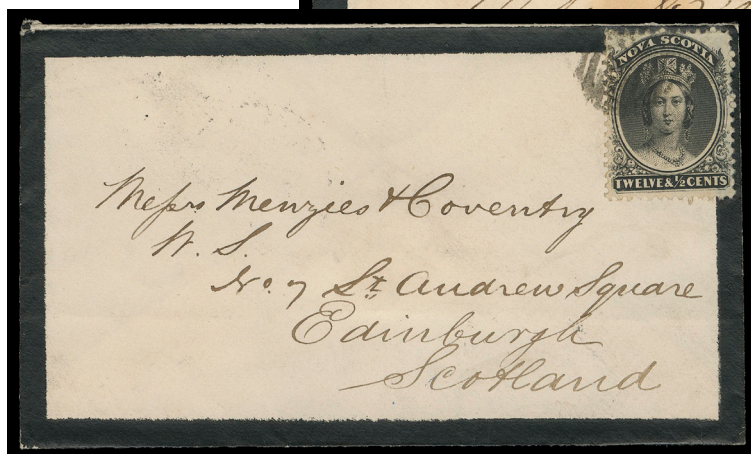 NOVA SCOTIA
TWELVE & ½ CENTS
Messrs Menzies & Coventry
W. S.
No. 7 St. Andrew Square
Edinburgh
Scotland